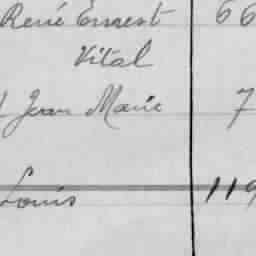 René Ernest 66
Vital
Jean Marie 7
Louis 119